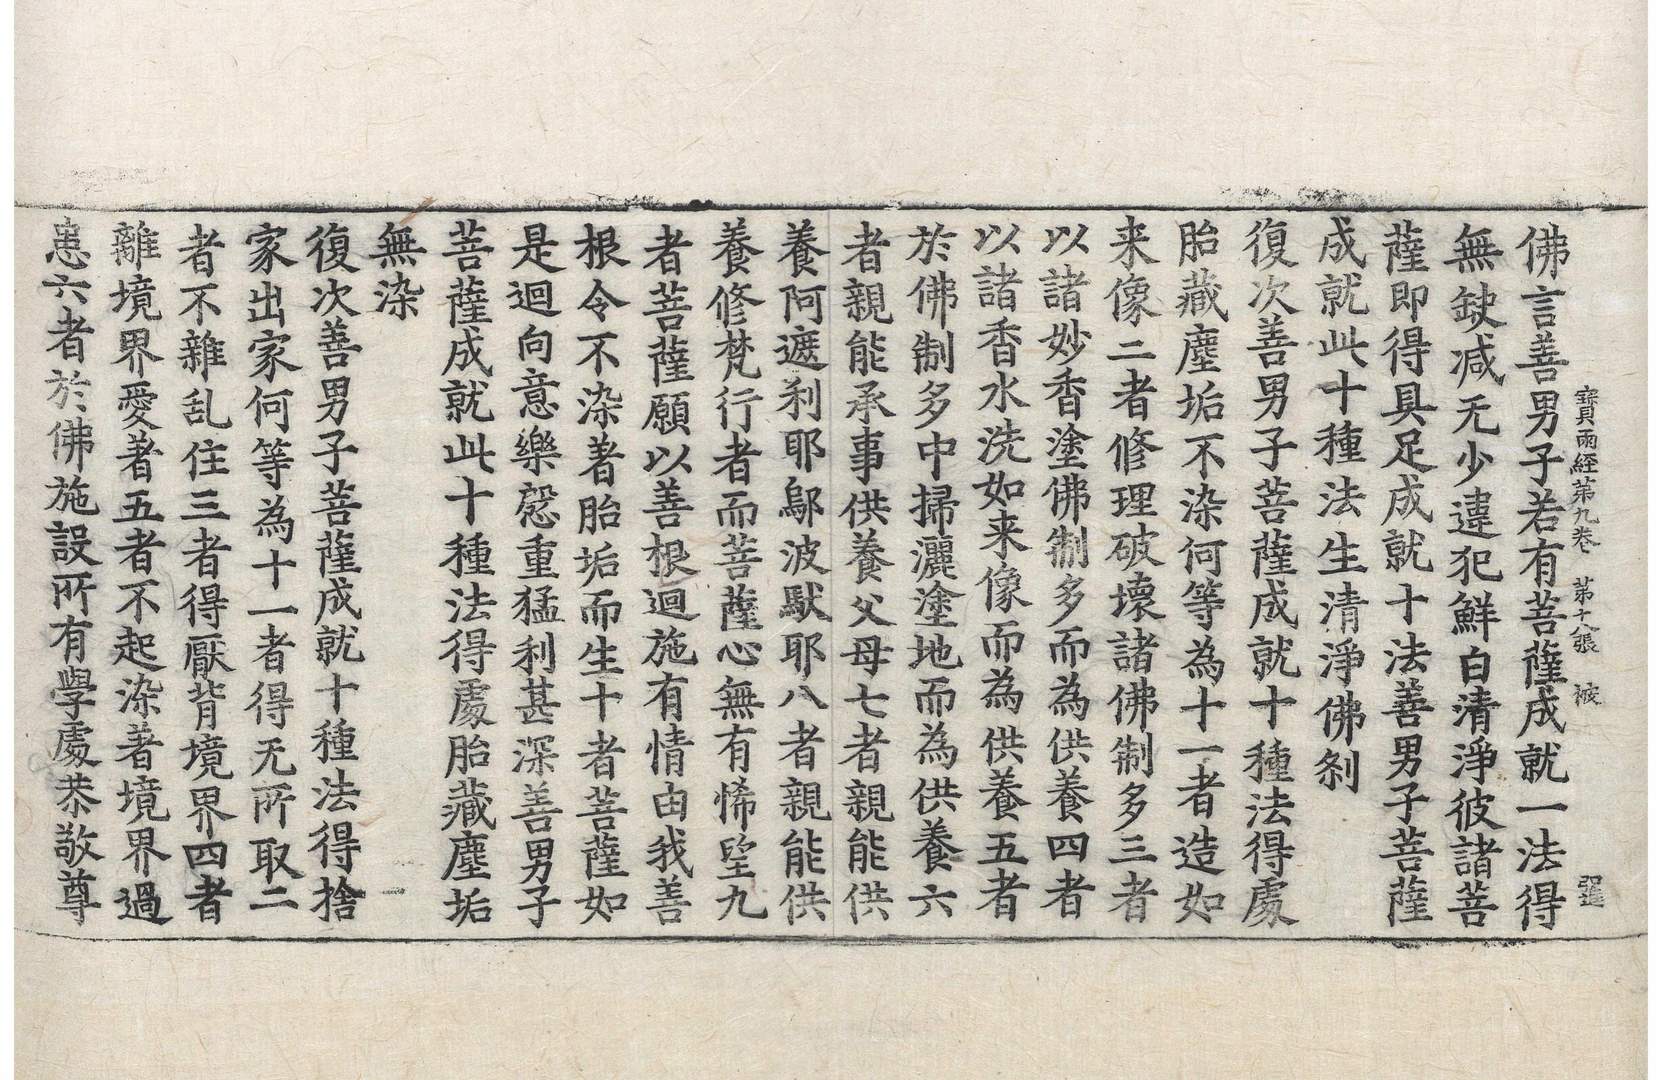 寶雨經第九卷 第十八張 被 遅
佛言善男子若有菩薩成就一法得
無缺减无少違犯鮮白清淨彼諸菩
薩即得具足成就十法善男子菩薩
成就此十種法生清淨佛刹
復次善男子菩薩成就十種法得處
胎藏塵垢不染何等為十一者造如
来像二者修理破壞諸佛制多三者
以諸妙香塗佛制多而為供養四者
以諸香水洗如来像而為供養五者
於佛制多中掃灑塗地而為供養六
者親能承事供養父母七者親能供
養阿遮利耶鄔波馱耶八者親能供
養修梵行者而菩薩心無有悕望九
者菩薩願以善根迴施有情由我善
根令不染著胎垢而生十者菩薩如
是迴向意樂慇重猛利甚深善男子
菩薩成就此十種法得處胎藏塵垢
無染
復次善男子菩薩成就十種法得捨
家出家何等為十一者得无所取二
者不雜乱住三者得厭背境界四者
離境界愛著五者不起染著境界過
患六者於佛施設所有學處恭敬尊